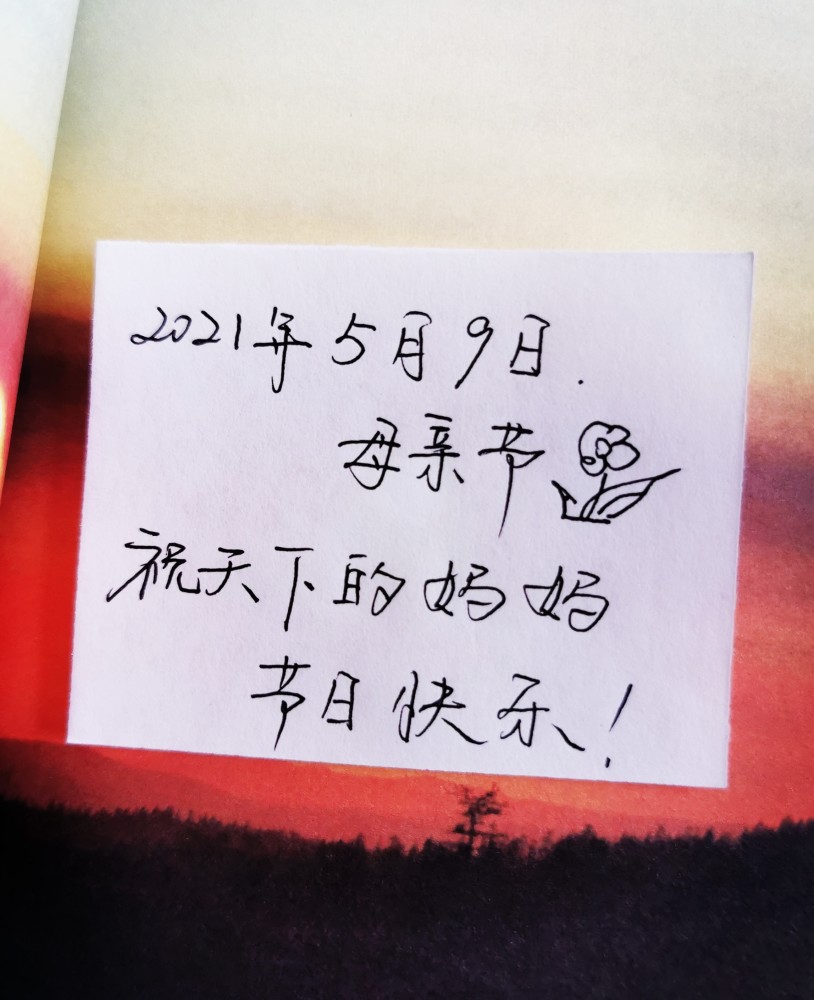 2021年5月9日.
母亲节
祝天下的妈妈
节日快乐!